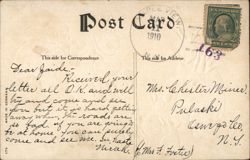 Post Card
This side for Correspondence.
This side for Address.
1910
163
Dear
Received your
letter all O.K. and will
try and come and see
you but it is hard getting
away when the roads are
so bad if you are going to
be at home you can surely
come and see me. In haste
Mrs. Chester Miner.
Pulaski
Oswego Co.
N.Y.
(Mrs F. Foster)